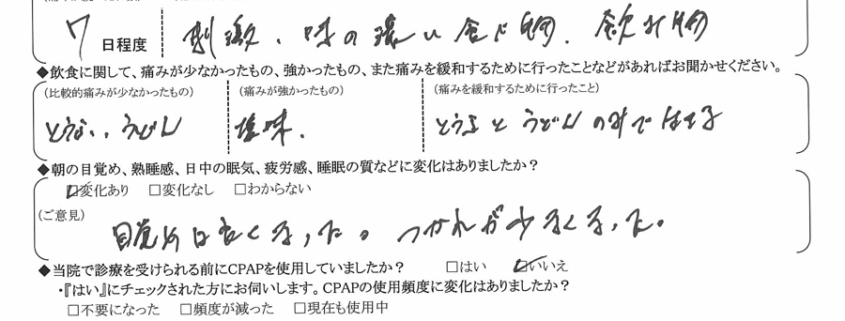 7 日程度 刺激、味の濃い食べ物、飲み物
◆飲食に関して、痛みが少なかったもの、強かったもの、また痛みを緩和するために行ったことなどがあればお聞かせください。
(比較的痛みが少なかったもの) (痛みが強かったもの) (痛みを緩和するために行ったこと)
とうふ、うどん 塩味、 とうふとうどんのみで
◆朝の目覚め、熟睡感、日中の眠気、疲労感、睡眠の質などに変化はありましたか?
☑変化あり □変化なし □わからない
(ご意見)
目覚めは良くなった。つかれが少なくなった。
◆当院で診療を受けられる前にCPAPを使用していましたか? □はい ☑いいえ
・『はい』にチェックされた方にお伺いします。CPAPの使用頻度に変化はありましたか?
□不要になった □頻度が減った □現在も使用中